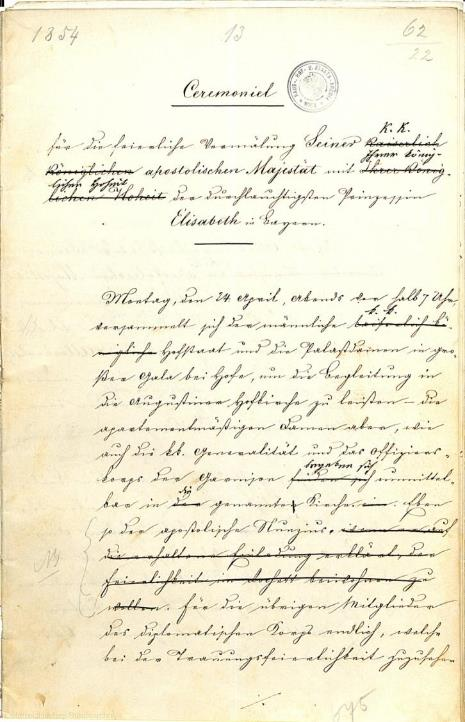 1854 13 62
22
Ceremoniel
für die feierliche Vermälung Seiner k. k. Kaiserlich
Königlichen apostolischen Majestät mit Ihrer könig-
licher Hoheit Ihrer König-
lichen Hoheit der durchlauchtigsten Prinzessin
Elisabeth in Bayern.
Montag, den 24 April, Abends vor halb 7 Uhr,
versammelt sich der männliche k. k. kaiserlich kö-
nigliche Hofstaat und die Palastdamen in gro-
ßer Gala bei Hofe, um die Begleitung in
die Augustiner Hofkirche zu leisten – die
apartementmäßigen Damen aber, wie
auch die kk. Generalität und das Offiziers-
korps der Garnison begeben sich finden sich unmittel-
bar in die der genannte Kirche ein. Eben
so der apostolische Nunzius, wenn er auf
die erhaltene Einladung erklärt, der
Feierlichkeit im beiwohnen zu
wollen. Für die übrigen Mitglieder
des diplomatischen Korps endlich, welche
bei der Trauungsfeierlichkeit zuzusehen